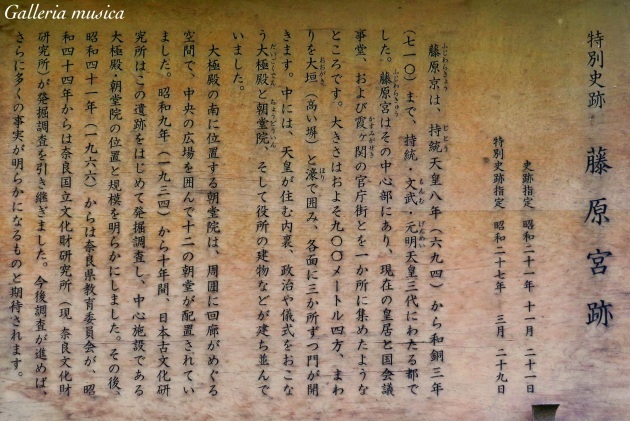 Galleria musica
特別史跡 藤原宮跡
史跡指定 昭和二十一年 十一月 二十一日
特別史跡指定 昭和二十七年 三月 二十九日
藤原京は、持統天皇八年(六九四)から和銅三年
(七一〇)まで、持統・文武・元明天皇三代にわたる都で
した。藤原宮はその中心部にあり、現在の皇居と国会議
事堂、および霞ヶ関の官庁街とを一か所に集めたような
ところです。大きさはおよそ九〇〇メートル四方、まわ
りを大垣(高い塀)と濠で囲み、各面に三か所ずつ門が開
きます。中には、天皇が住む内裏、政治や儀式をおこな
う大極殿と朝堂院、そして役所の建物などが建ち並んで
いました。
大極殿の南に位置する朝堂院は、周囲に回廊がめぐる
空間で、中央の広場を囲んで十二の朝堂が配置されてい
ました。昭和九年(一九三四)から十年間、日本古文化研
究所はこの遺跡をはじめて発掘調査し、中心施設である
大極殿・朝堂院の位置と規模を明らかにしました。その後、
昭和四十一年(一九六六)からは奈良県教育委員会が、昭
和四十四年からは奈良国立文化財研究所(現 奈良文化財
研究所)が発掘調査を引き継ぎました。今後調査が進めば、
さらに多くの事実が明らかになるものと期待されます。